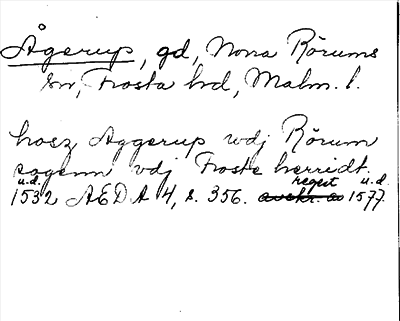 Ågerup, gd, Norra Rörums
sn, Frosta hd, Malm. l.
hosz Aggerup wdj Rörum
sogenn vdj Froste herridt.
u.d. regest u.d.
1532 AEDA 4, s. 356. avskr. av 1577.